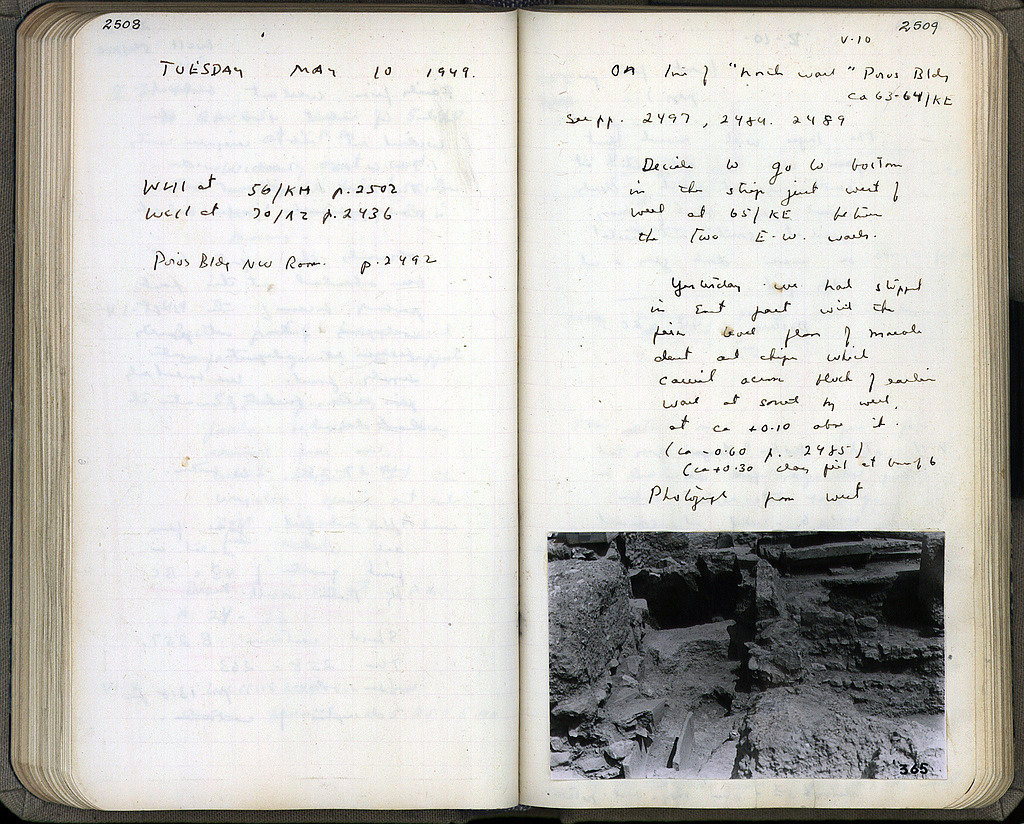 2508
TUESDAY MAY 10 1949.
Well at 56/KH p.2502
Well at 70/12 p.2436
Poros Bldg NW Room. p.2492
2509
V-10
On line of "North wall" Poros Bldg
ca 63-64/KE
See pp. 2497, 2484. 2489
Decide to go to bottom
in the strip just west of
well at 65/KE between
the two E-W. walls.
Yesterday we had stopped
in East part with the
level floor of marble
dust and chips which
carried across block of earlier
wall at south by well,
at ca +0.10 above it.
(ca -0.60 p. 2485)
(ca +0.30 clay at
Photograph from west
365